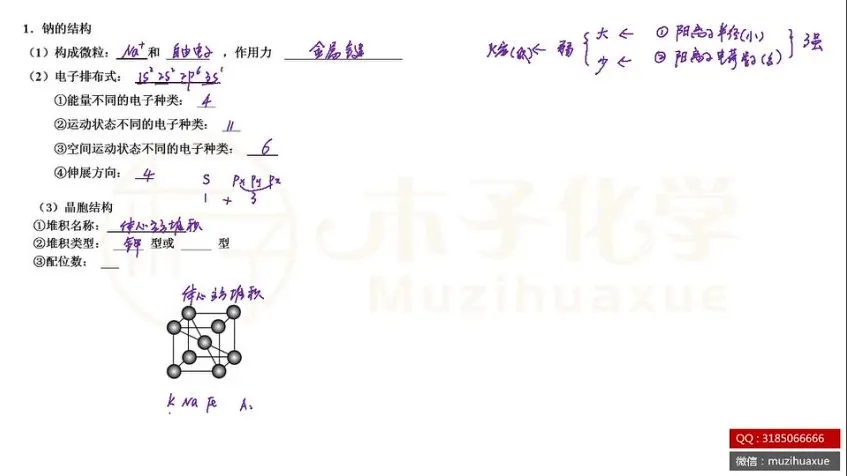 1．钠的结构
（1）构成微粒： Na⁺ 和 自由电子 ，作用力 金属键
（2）电子排布式： 1s² 2s² 2p⁶ 3s¹
①能量不同的电子种类： 4
②运动状态不同的电子种类： 11
③空间运动状态不同的电子种类： 6
④伸展方向： 4
S Px Py Pz
1 + 3
（3）晶胞结构
①堆积名称： 体心立方堆积
②堆积类型： 钾 型或 型
③配位数：
体心立方堆积
K Na Fe A
← 弱 { 大 ← ① 阳离子半径(小)
少 ← ② 阳离子电荷数(多) } 强
木子化学
Muzihuaxue
QQ : 3185066666
微信 : muzihuaxue